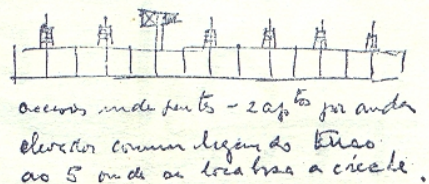 acessos independentes - 2 aptos por andar
elevador comum ligando térreo
ao 5 onde se localiza a creche.